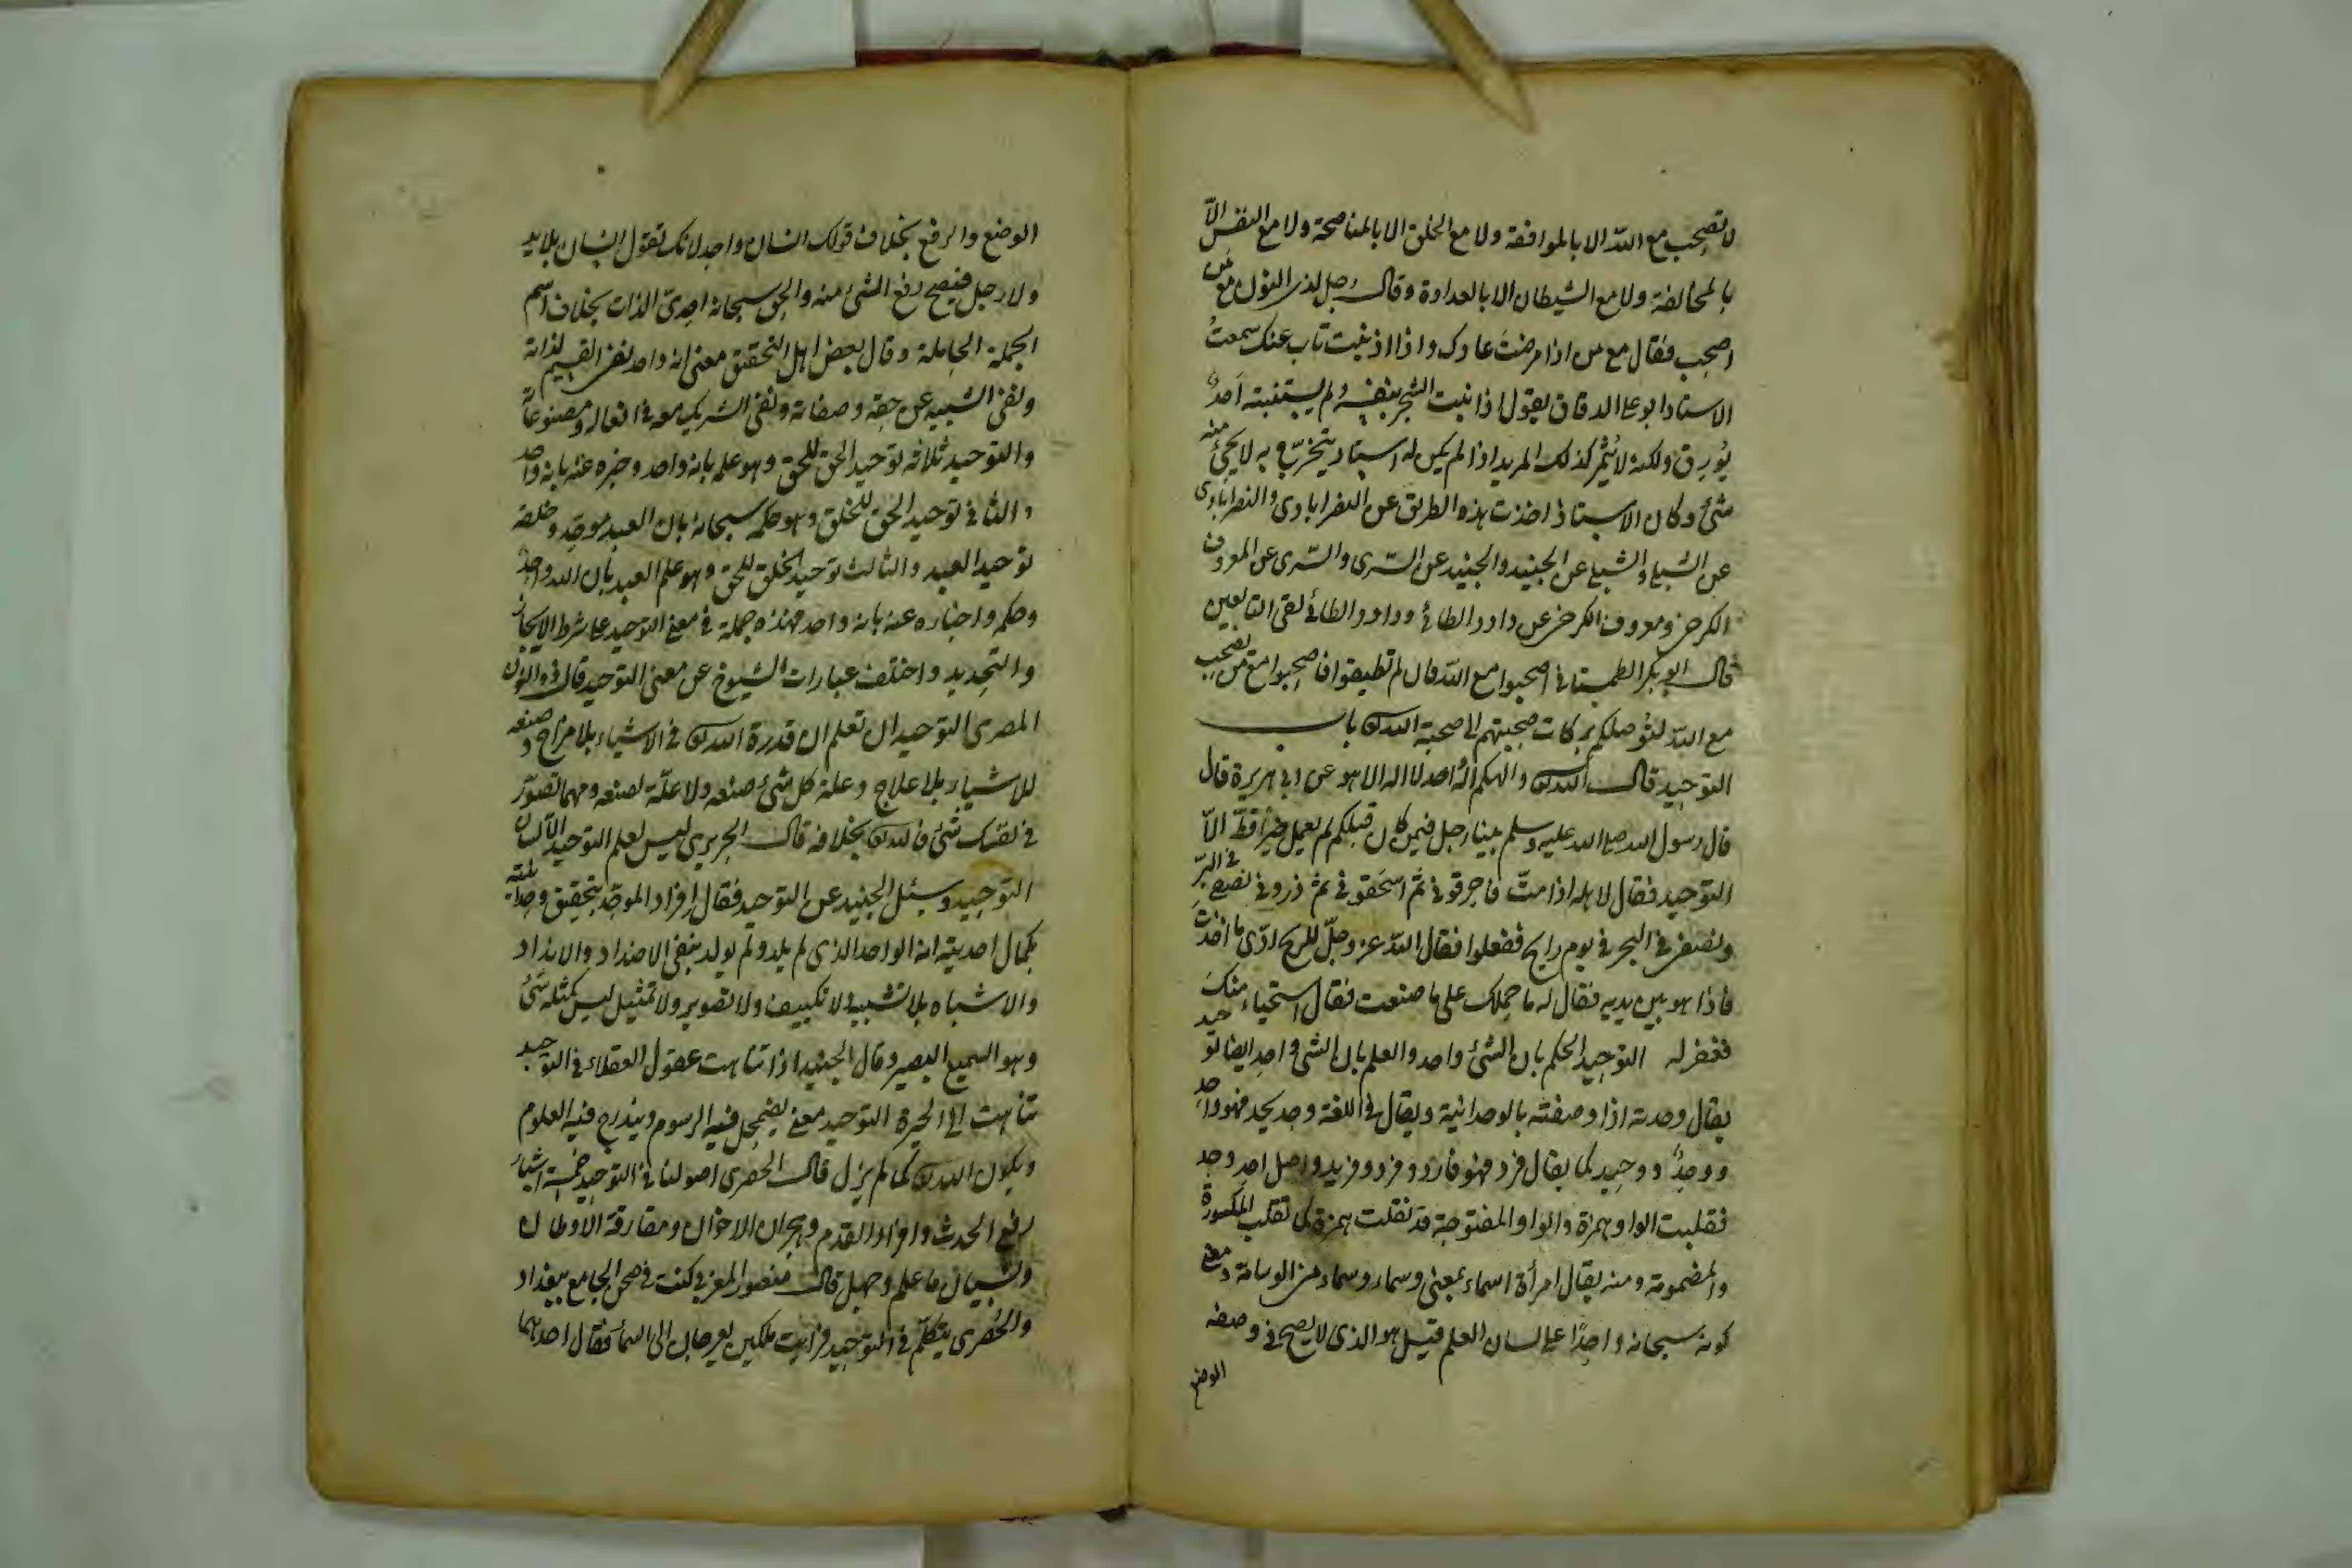 لا تصحب مع الله الا بالموافقة ولا مع الخلق الا بالمناصحة ولا مع النفس الّا
بالمخالفة ولا مع الشيطان الا بالعداوة وقال رجل لذى النون مع من
اصحب فقال مع من اذا مرضتَ عادك واذا اذنبت تاب عنك سمعتُ
الاستاد ابو على الدقاق يقول اذا نبت الشجر بنفسه ولم يستنبته اَحدٌ
يُورِق ولكنه لا يُثمِر كذلك المريد اذا لم يكن له استاد يتخرّج به لا يجئ منه
شئ وكان الاستاذ اخذت هذه الطريق عن النصرابادى والنصرابادى
عن الشبلى والشبلى عن الجنيد والجنيد عن السّرى والسّرى عن المعروف
الكرخى ومعروف الكرخى عن داود الطائى وداود الطائى لقى التابعين
قال ابو بكر الطمستانى اصحبوا مع الله فان لم تطيقوا فاصحبوا مع من تصحب
مع الله لتوصلكم بركات صحبتهم الى صحبة الله تعالى باب
التوحيد قال الله تعالى والهكم الهٌ احد لا اله الا هو عن ابى هريرة قال
قال رسول الله صلى الله عليه وسلم بينا رجل فيمن كان قبلكم لم يعمل خيرًا قطّ الّا
التوحيد فقال لاهله اذا متّ فاحرقونى ثم اسحقونى ثم ذرونى نصفى فى البرّ
ونصفى فى البحر فى يوم رايح ففعلوا فقال الله عز وجلّ للريح ادّى ما اخذتِ
فاذا هو بين يديه فقال له ما حملك على ما صنعت فقال استحياء منكَ
فغفر له التوحيد الحكم بان الشئ واحد والعلم بان الشئ واحد ايضا توحيد
يقال وحدته اذا وصفته بالوحدانية ويقال فى اللغة وحد يحد فهو واحد
ووحدٌ ووحيد كما يقال فرد فهو فارد وفرد وفريد واصل احد وحد
فقلبت الواو همزة والواو المفتوحة قد تقلب همزة كما تقلب المكسورة
والمضمومة ومنه يقال امرأة اسماء بمعنى وسماء وسماء من الوسامة ومعنى
كونه سبحانه واحدًا على لسان العلم قيل هو الذى لا يصح فى وصفه
الوضع
الوضع والرفع بخلاف قولك انسان واحد لانك تقول انسان بلا يد
ولا رجل فيصح رفع الشئ منه والحق سبحانه احدىّ الذات بخلاف اسم
الجملة الحاملة وقال بعض اهل التحقيق معنى انه واحد نفى القسيم لذاته
ونفى الشبيه عن حقه وصفاته ونفى الشريك معه فى افعاله ومصنوعاته
والتوحيد ثلاثه توحيد الحق للحق وهو علمه بانه واحد وخبره عنه بانه واحد
والثانى توحيد الحق للخلق وهو حكمه سبحانه بان العبد موحّد وخلقه
توحيد العبد والثالث توحيد الخلق للحق وهو علم العبد بان الله واحدٌ
وحكمه واخباره عنه بانه واحد فهذه جملة فى معنى التوحيد على شرط الايجاز
والتحديد واختلف عبارات الشيوخ عن معنى التوحيد قال ذو النون
المصرى التوحيد ان تعلم ان قدرة الله تعالى فى الاشياء بلا مزاج وصنعه
للاشياء بلا علاج وعلة كل شئ صنعه ولا علّة لصنعه ومهما تصوّر
فى نفسك شئ فالله تعالى بخلافه قال الجريرى ليس لعلم التوحيد الّا لسان
التوحيد وسئل الجنيد عن التوحيد فقال افراد الموحّد بتحقيق وحدانيته
بكمال احديته انه الواحد الذى لم يلد ولم يولد بنفى الاضداد والانداد
والاشباه بلا تشبيه ولا تكييف ولا تصوير ولا تمثيل ليس كمثله شئ
وهو السميع البصير وقال الجنيد اذا تناهت عقول العقلاء فى التوحيد
تناهت الى الحيرة التوحيد معنى يضمحل فيه الرسوم ويندرج فيه العلوم
ويكون الله تعالى كما لم يزل قال الحصرى اصولنا فى التوحيد خمسة اشياء
رفع الحدث وافراد القدم وهجران الاخوان ومفارقة الاوطان
ونسيان ما علم وجهل قال منصور المغربى كنت فى صحن الجامع ببغداد
والحُصرى يتكلّم فى التوحيد فرايت ملكين يعرجان الى السماء فقال احدهما